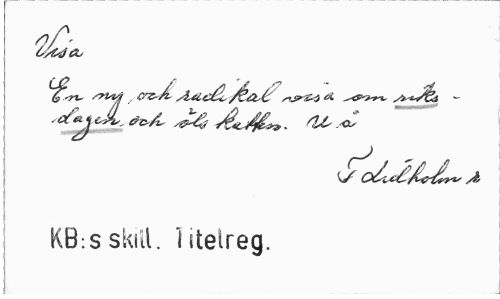 Visa
En ny och radikal visa om riks-
dagen och öls katten. U å
F Lidholm r
KB:s skill. Titelreg.